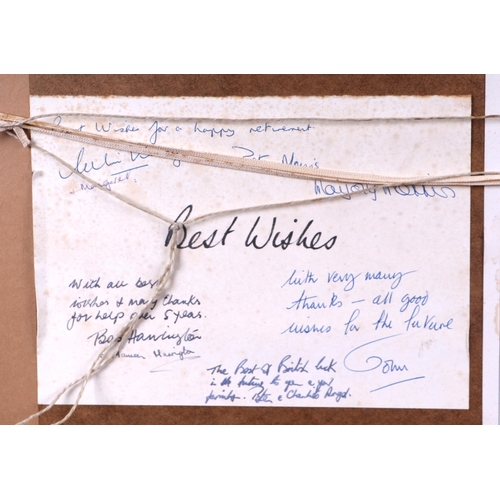 Best Wishes for a happy retirement
Margaret.
Pat Norris
Best Wishes
With all best
wishes & many thanks
for help over 5 years.
Harrington
Harrington
With very many
thanks - all good
wishes for the future
John
The Best of British luck
in the future to you &
& Charles